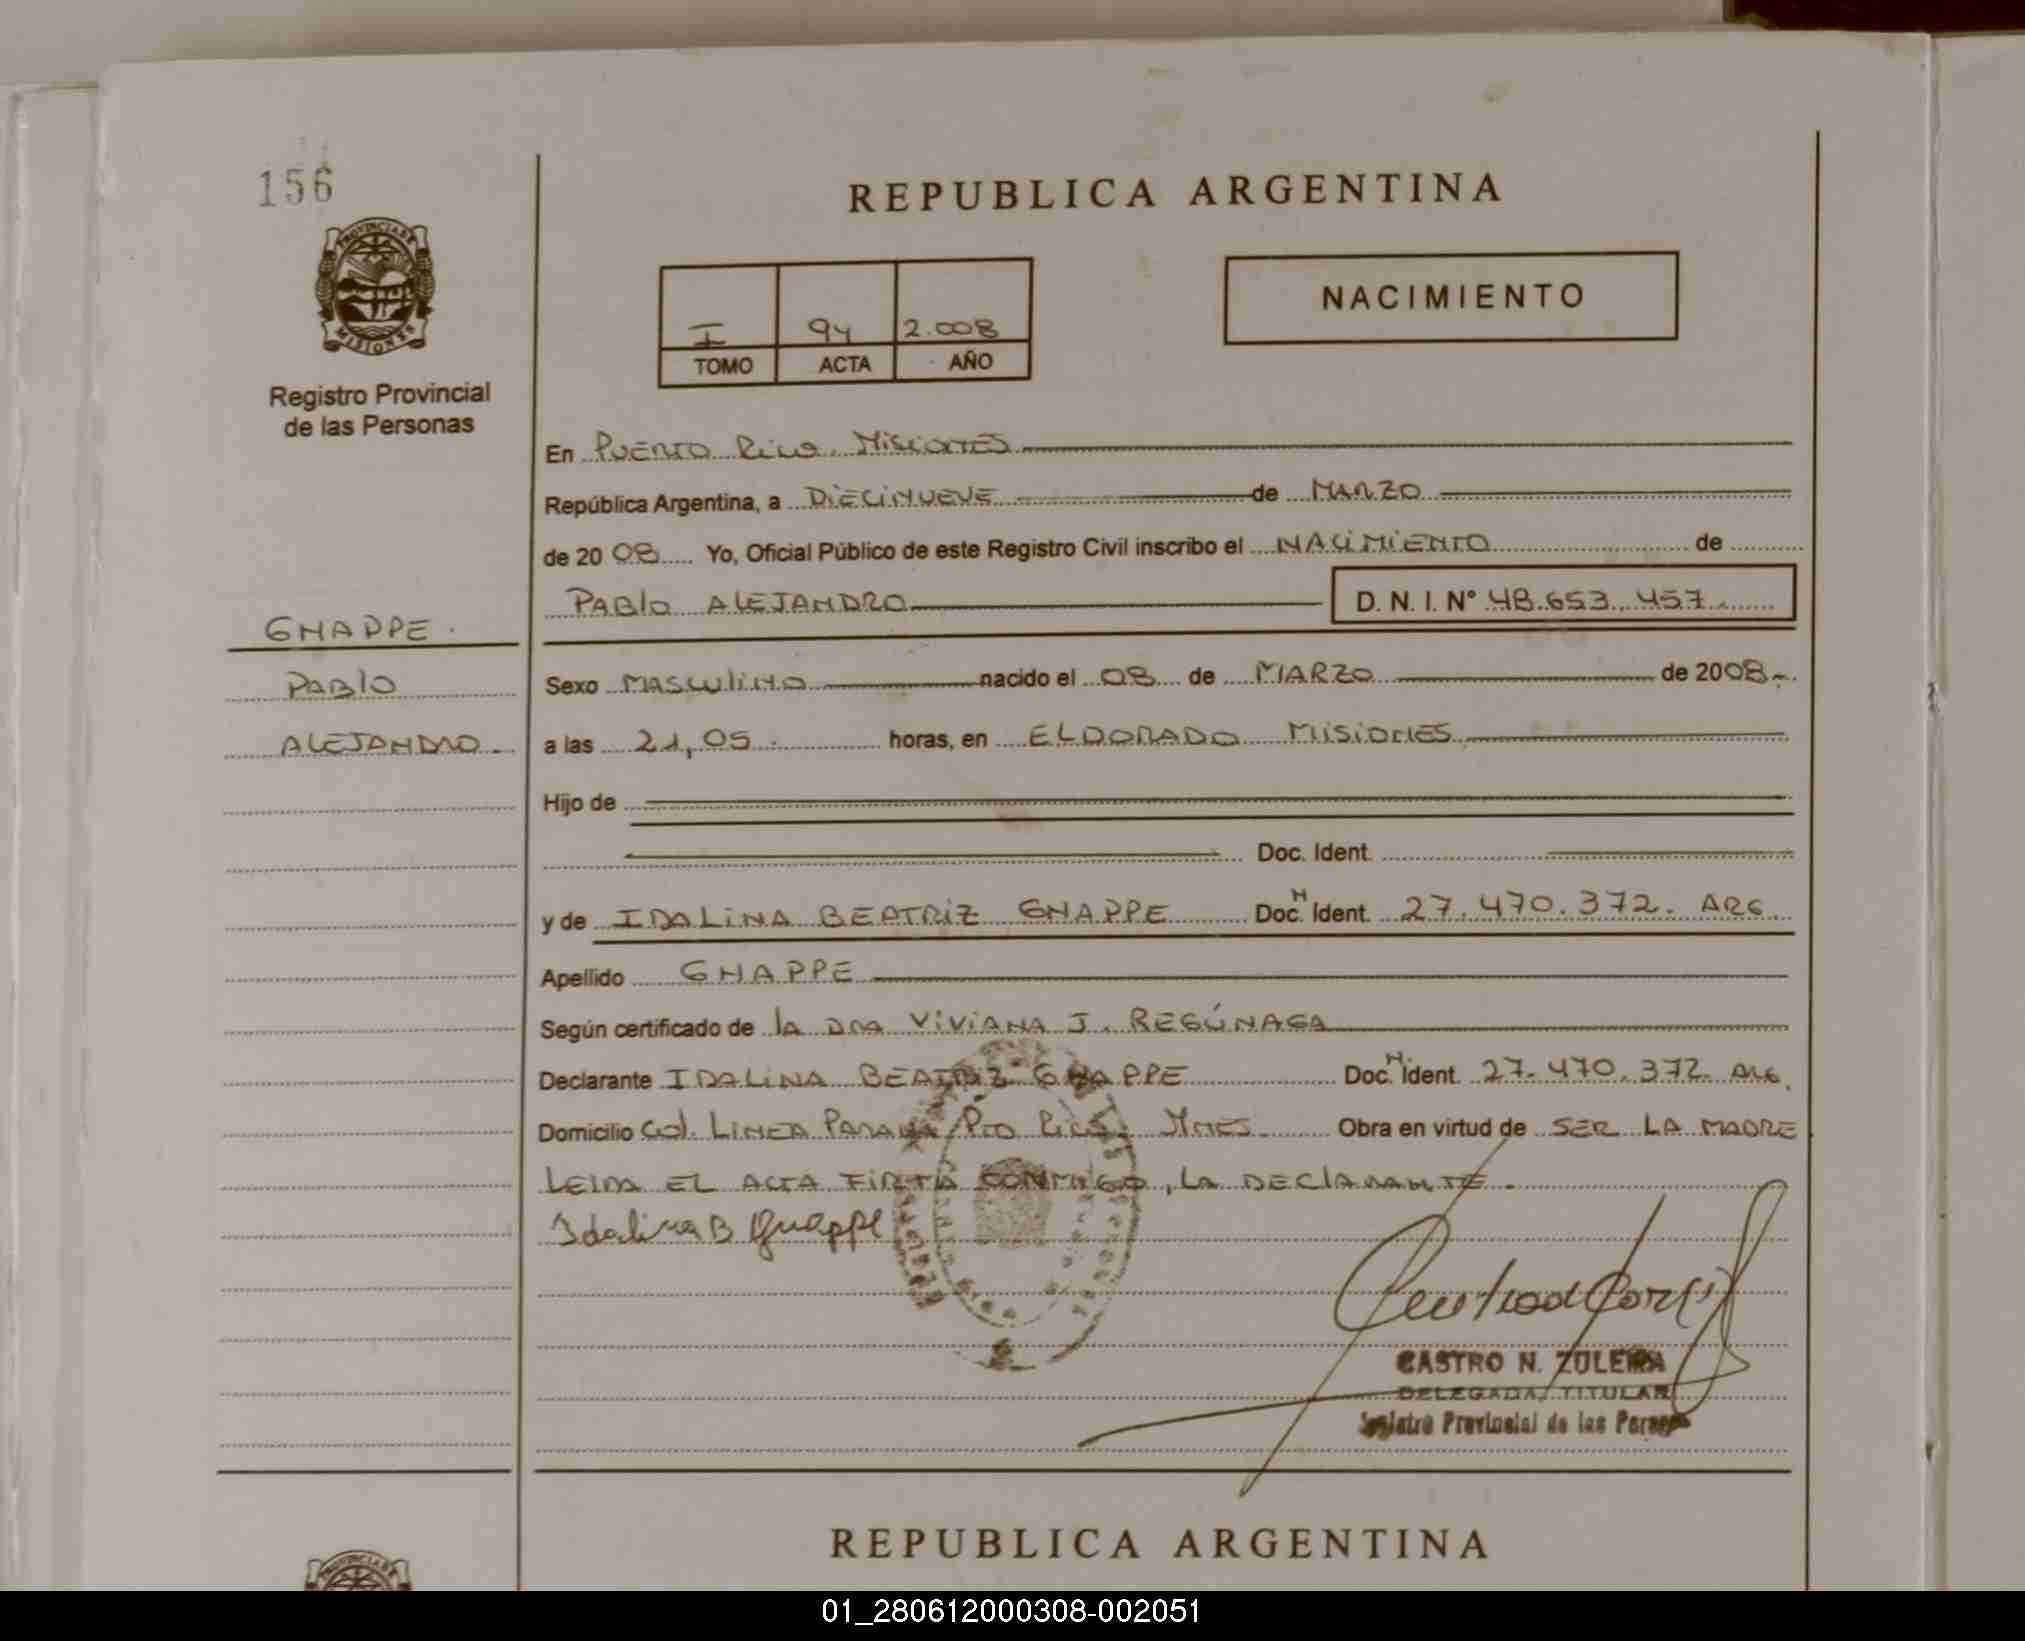 156
REPUBLICA ARGENTINA
PROVINCIA DE
MISIONES
Registro Provincial
de las Personas
I 94 2.008
TOMO ACTA AÑO
NACIMIENTO
En PUERTO RICO. MISIONES
República Argentina, a DIECINUEVE de MARZO
de 2008 Yo, Oficial Público de este Registro Civil inscribo el NACIMIENTO de
PABLO ALEJANDRO D. N. I. N° 48.653.457
GNAPPE.
PABLO
ALEJANDRO.
Sexo MASCULINO nacido el 08 de MARZO de 2008.
a las 21,05. horas, en ELDORADO MISIONES
Hijo de
Doc. Ident.
y de IDALINA BEATRIZ GNAPPE Doc. N Ident. 27.470.372. ARG.
Apellido GNAPPE
Según certificado de LA DRA VIVIANA J. REGÚNAGA
Declarante IDALINA BEATRIZ GNAPPE Doc. N Ident. 27.470.372 ARG.
Domicilio Col. LINEA PARANA PTO RICO. MNES Obra en virtud de SER LA MADRE
LEIDA EL ACTA FIRMA CONMIGO, LA DECLARANTE.
Idalina B Gnappe
CASTRO N. ZULEMA
DELEGADA TITULAR
Registro Provincial de las Personas
REPUBLICA ARGENTINA
PROVINCIA DE
01_280612000308-002051